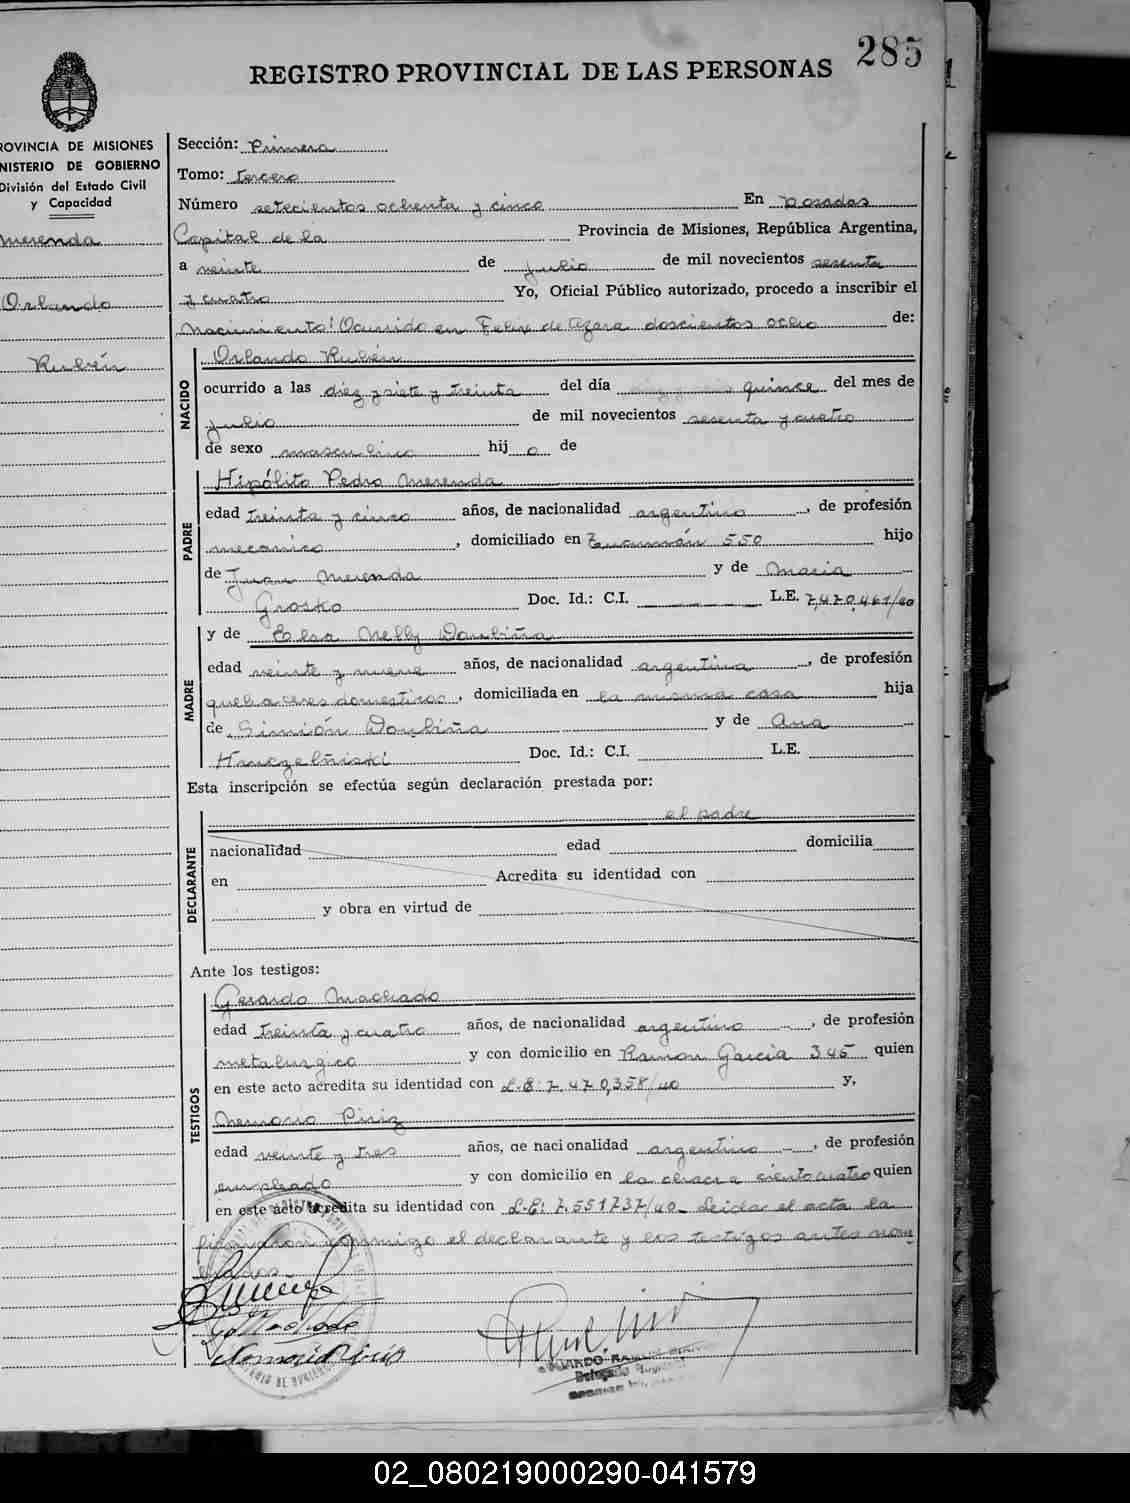 285
REGISTRO PROVINCIAL DE LAS PERSONAS
ROVINCIA DE MISIONES
NISTERIO DE GOBIERNO
División del Estado Civil
y Capacidad
Merenda
Orlando
Rubén
Sección: Primera
Tomo: Tercero
Número setecientos ochenta y cinco En Posadas
Capital de la Provincia de Misiones, República Argentina,
a veinte de julio de mil novecientos sesenta
y cuatro Yo, Oficial Público autorizado, procedo a inscribir el
nacimiento: Ocurrido en Felix de Azara doscientos ocho de:
NACIDO
Orlando Rubén
ocurrido a las diez y siete y treinta del día quince del mes de
julio de mil novecientos sesenta y cuatro
de sexo masculino hij o de
PADRE
Hipólito Pedro Merenda
edad treinta y cinco años, de nacionalidad argentino, de profesión
mecánico, domiciliado en Tucumán 550 hijo
de Juan Merenda y de Maria
Grosko Doc. Id.: C.I. L.E. 7,470,461/40
MADRE
y de Elsa Nelly Doubiña
edad veinte y nueve años, de nacionalidad argentina, de profesión
quehaceres domesticos, domiciliada en la misma casa hija
de Simión Doubiña y de Ana
Doc. Id.: C.I. L.E.
Esta inscripción se efectúa según declaración prestada por:
DECLARANTE
el padre
nacionalidad edad domicilia
en Acredita su identidad con
y obra en virtud de
Ante los testigos:
TESTIGOS
Gerardo Machado
edad treinta y cuatro años, de nacionalidad argentino, de profesión
metalurgico y con domicilio en Ramon Garcia 345 quien
en este acto acredita su identidad con L.E: 7.470,358/40 y,
Nemorio Piriz
edad veinte y tres años, de nacionalidad argentino, de profesión
empleado y con domicilio en la chacra ciento cuatro quien
en este acto acredita su identidad con L.E: 7.551737/40 Leida el acta la
firmaron conmigo el declarante y los testigos antes nom
brados
02_080219000290-041579